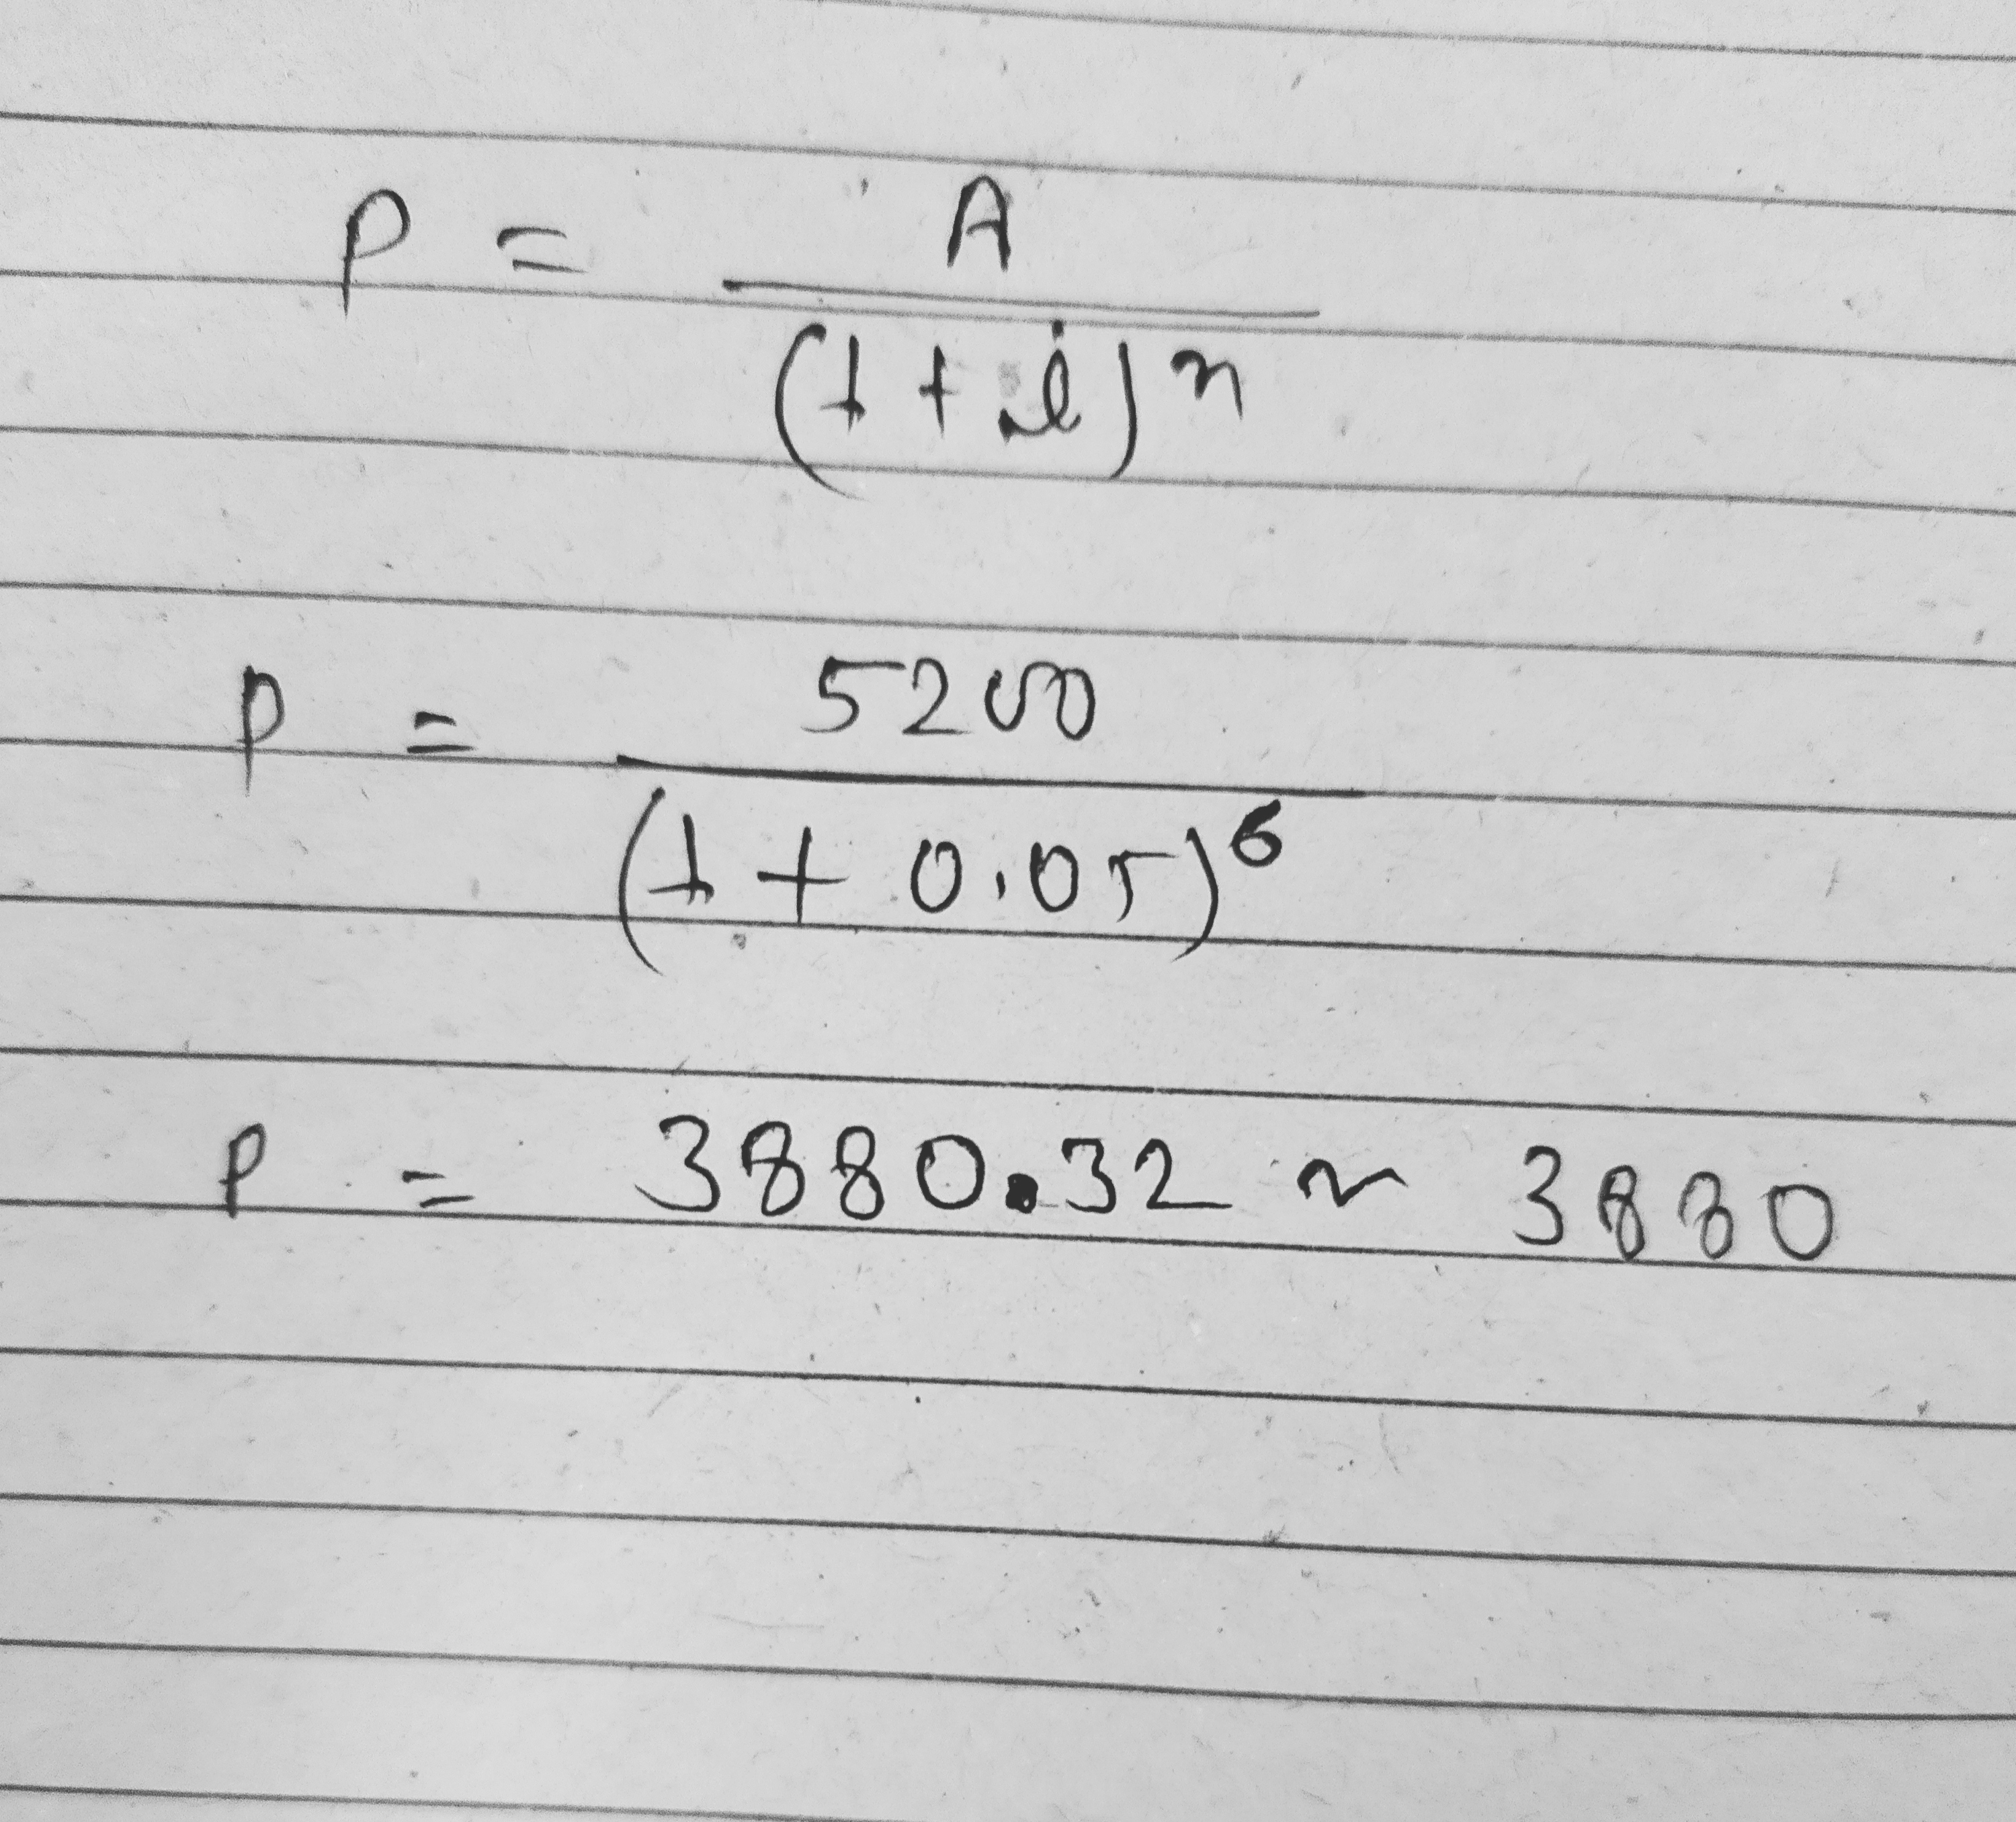 P = A
(1 + i)^n
P = 5200
(1 + 0.05)^6
P = 3880.32 ~ 3880